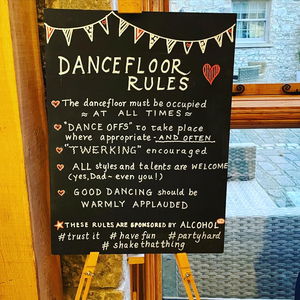 DANCEFLOOR
RULES
The dancefloor must be occupied
≈ AT ALL TIMES ≈
"DANCE OFFS" to take place
where appropriate - AND OFTEN
"TWERKING" encouraged
ALL styles and talents are WELCOME
(yes, Dad ~ even you!)
GOOD DANCING should be
WARMLY APPLAUDED
THESE RULES ARE SPONSORED BY ALCOHOL
#trust it #have fun #partyhard
#shakethatthing